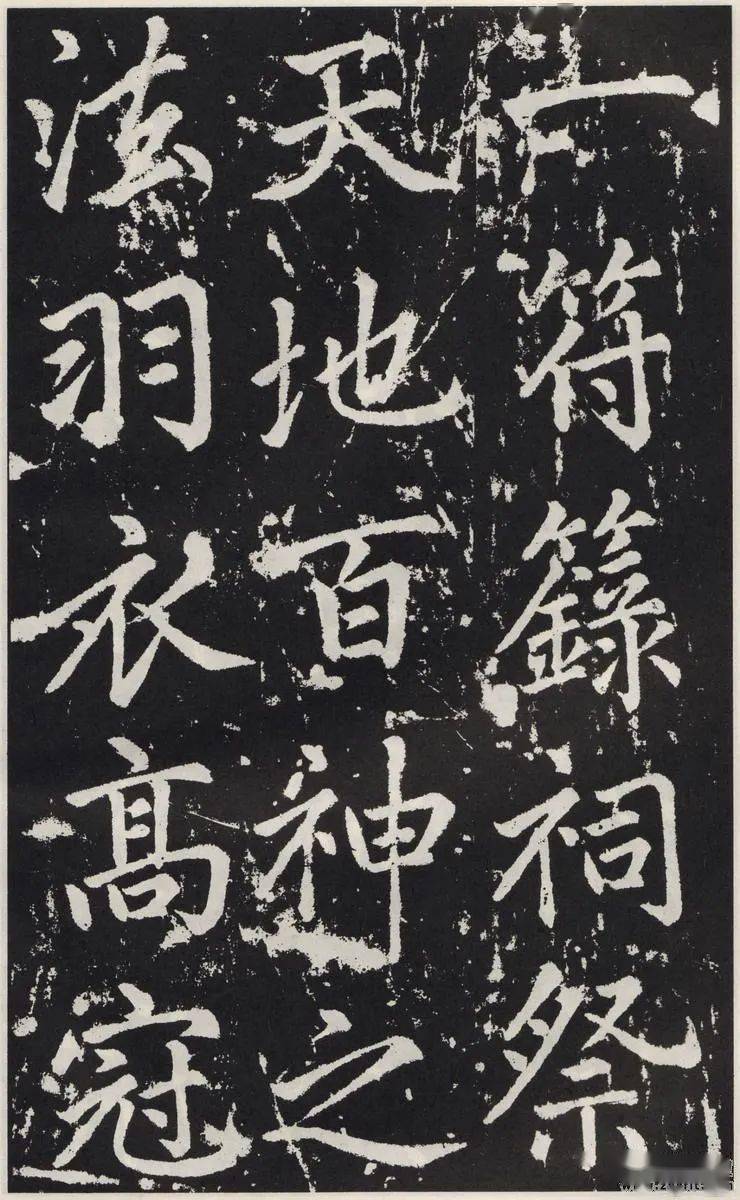 符籙祠祭
天地百神之
法羽衣髙冠